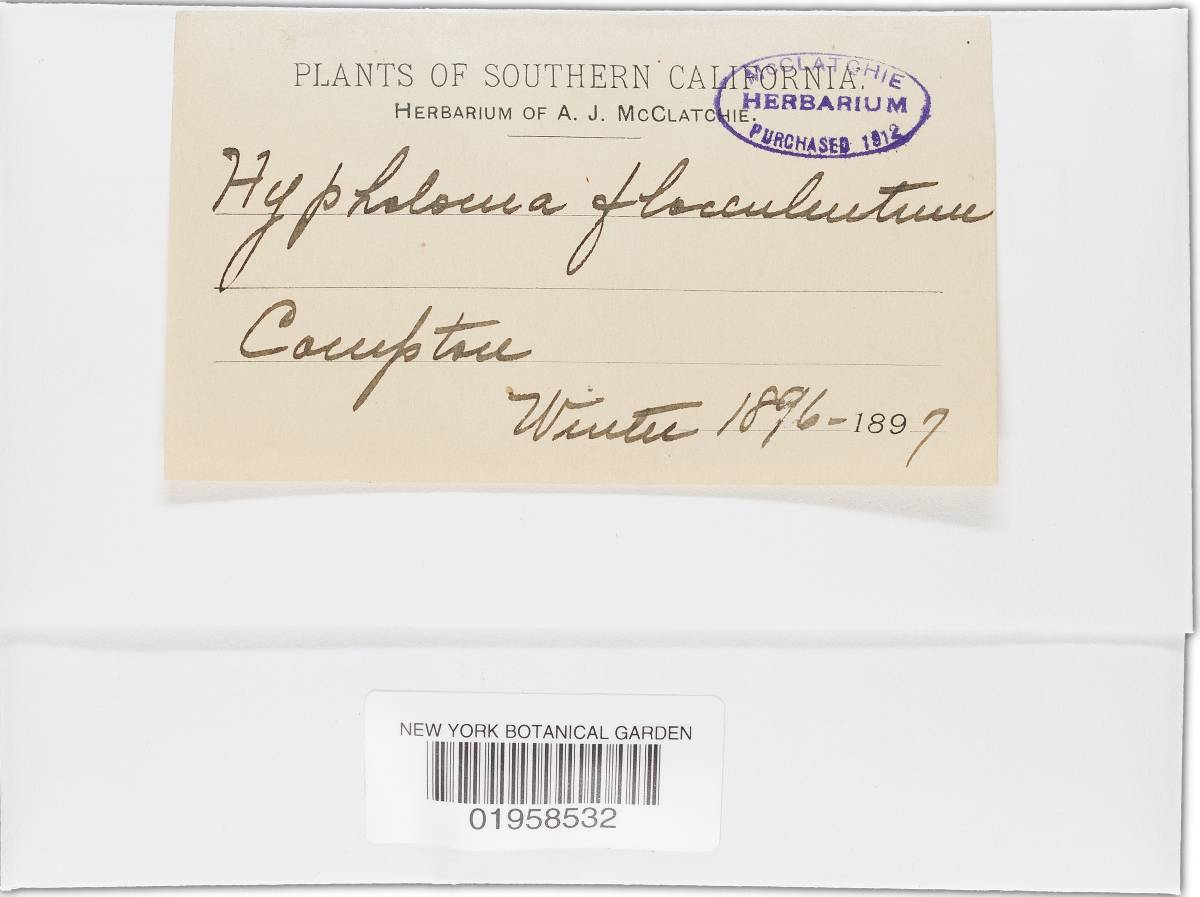 PLANTS OF SOUTHERN CALIFORNIA.
HERBARIUM OF A. J. MCCLATCHIE.
MCCLATCHIE
HERBARIUM
PURCHASED 1912
Hypholoma flocculentum
Compton
Winter 1896-1897
NEW YORK BOTANICAL GARDEN
01958532